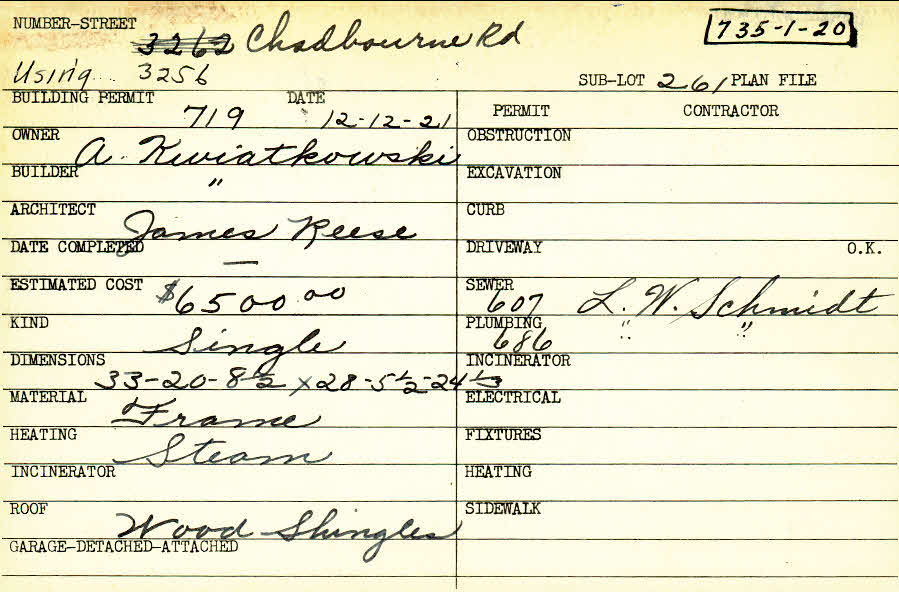 NUMBER-STREET 3262 Chadbourne Rd 735-1-20
Using 3256 SUB-LOT 261 PLAN FILE
BUILDING PERMIT 719 DATE 12-12-21 PERMIT CONTRACTOR
OWNER A. Kwiatkowski OBSTRUCTION
BUILDER " EXCAVATION
ARCHITECT James Reese CURB
DATE COMPLETED — DRIVEWAY O.K.
ESTIMATED COST $6500.00 SEWER 607 L. W. Schmidt
KIND Single PLUMBING 686 " "
DIMENSIONS 33-20-8½ x 28-5½-24⅓ INCINERATOR
MATERIAL Frame ELECTRICAL
HEATING Steam FIXTURES
INCINERATOR HEATING
ROOF Wood Shingles SIDEWALK
GARAGE-DETACHED-ATTACHED